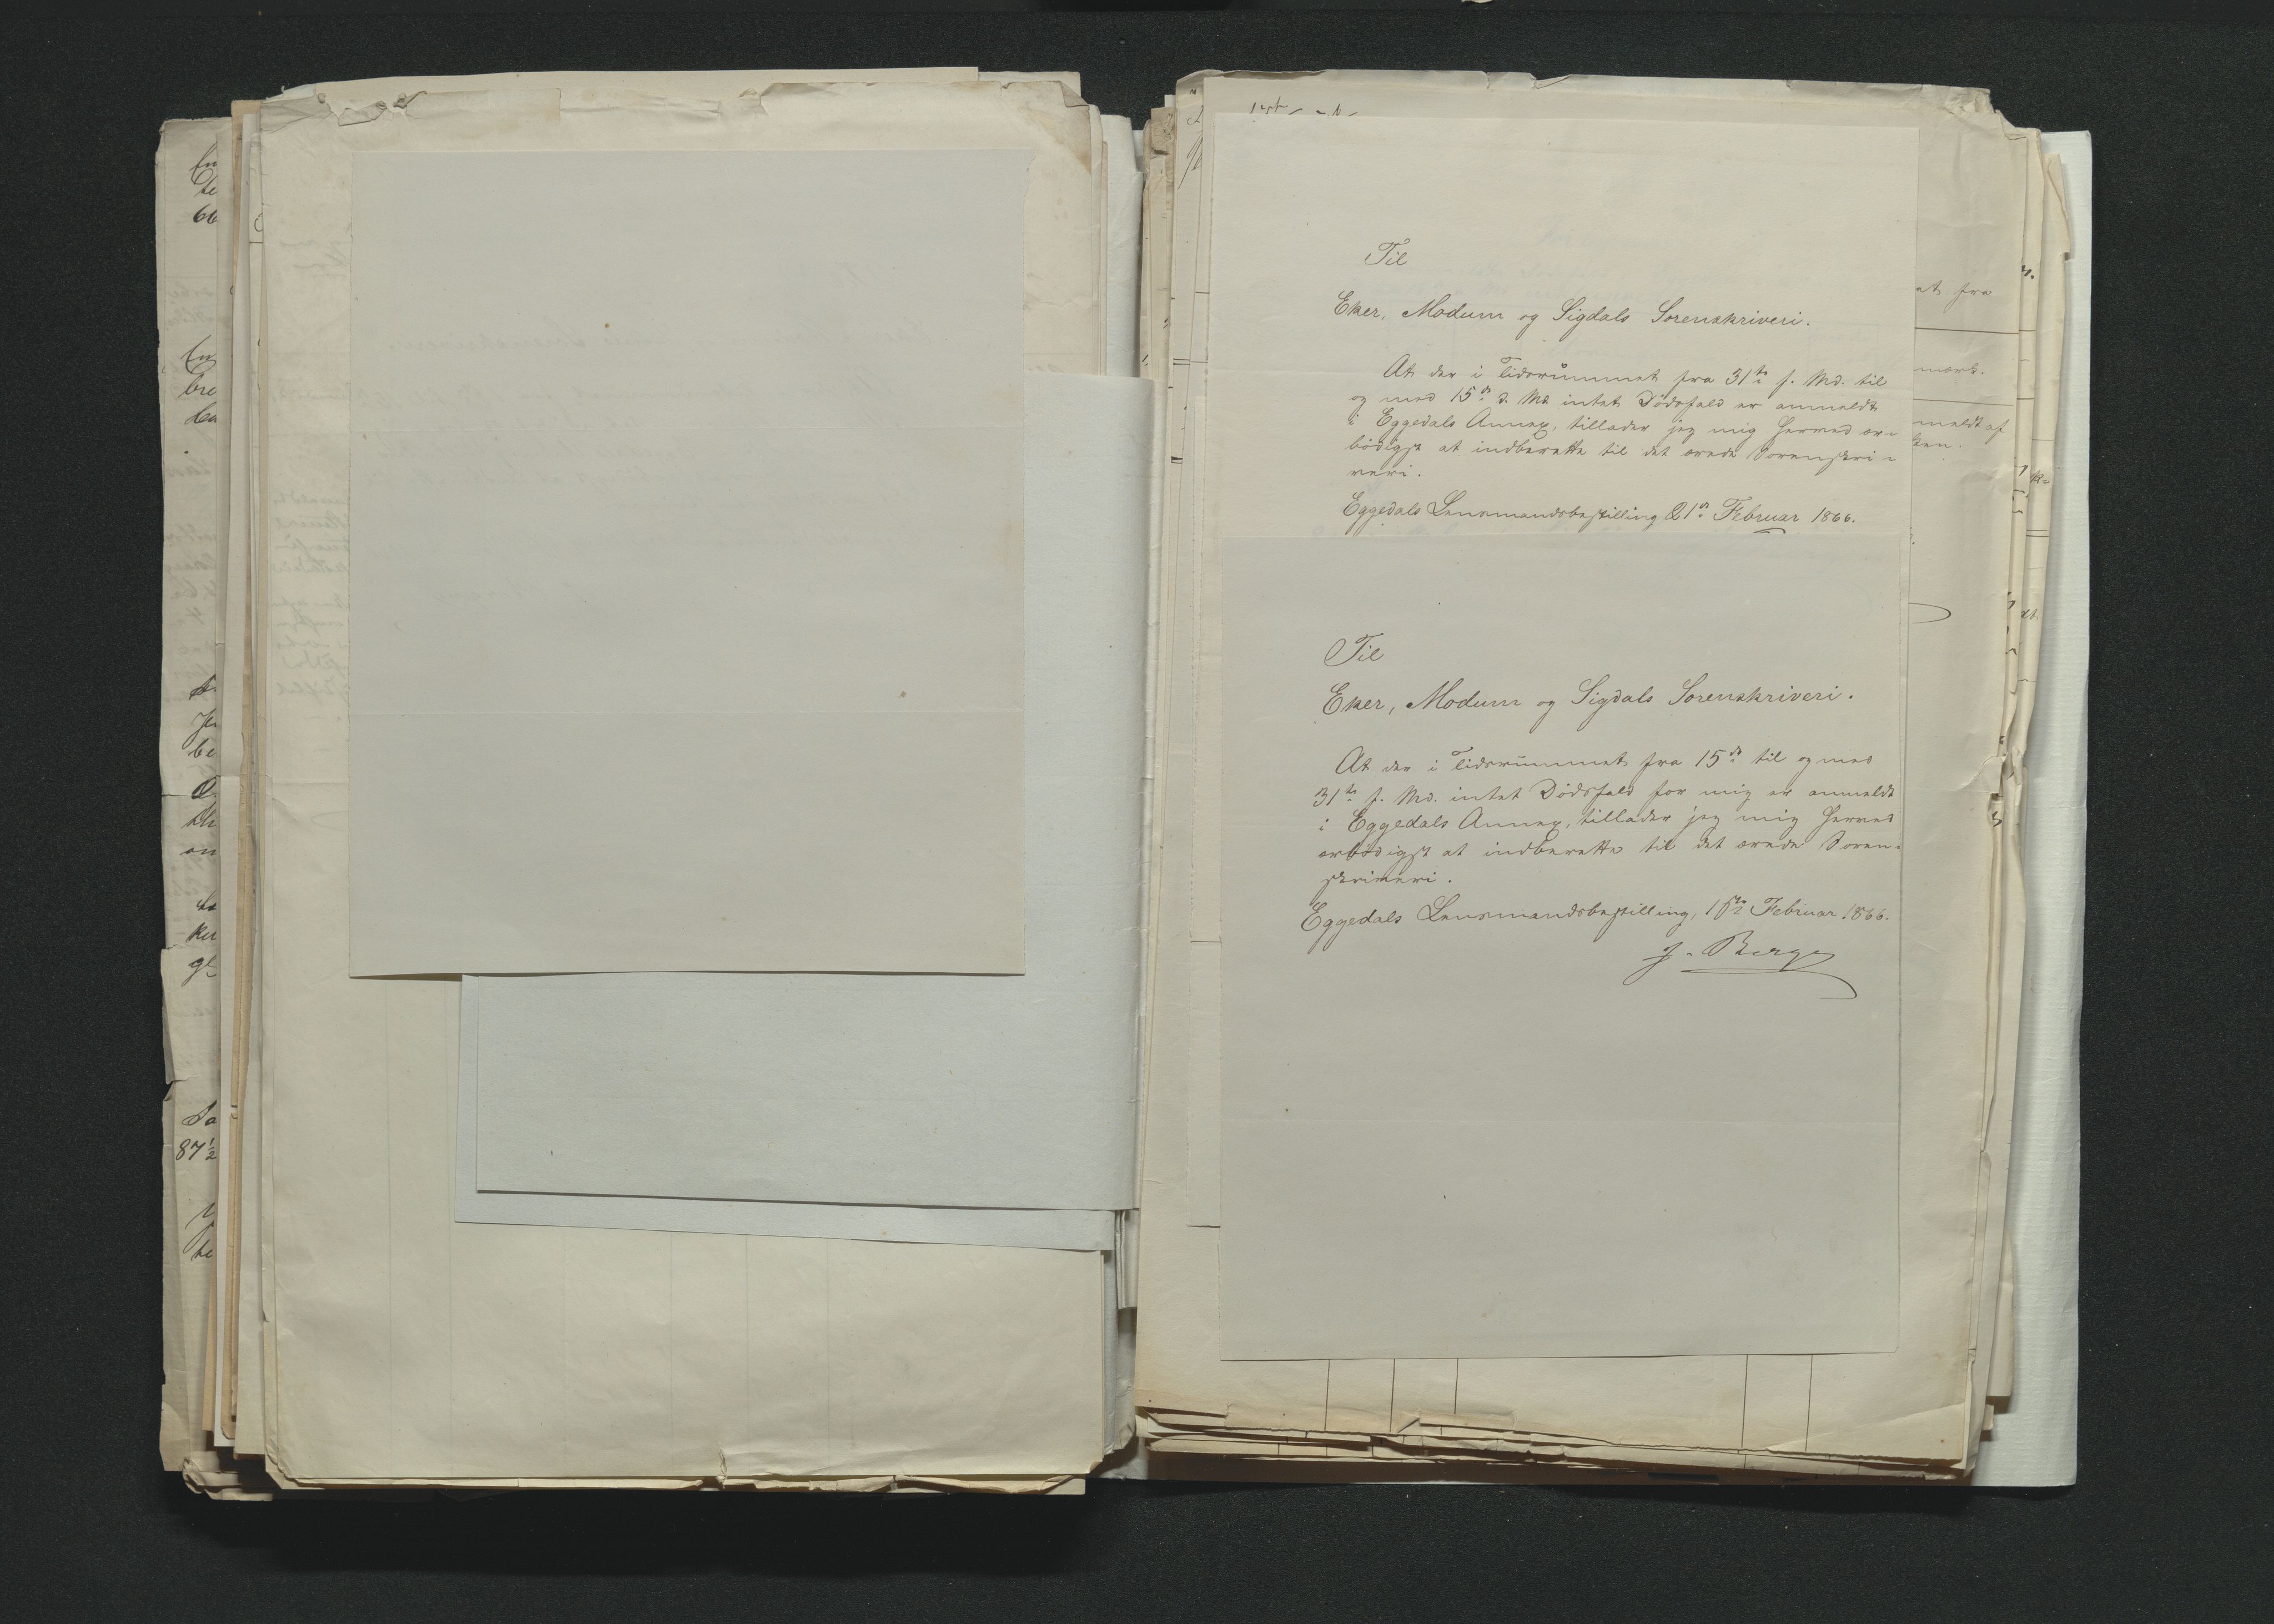 Til
Eker, Modum og Sigdals Sorenskriveri.
At der i Tidsrummet fra 31te f. Md. til
og med 15de d. Md. intet Dödsfald er anmeldt
i Eggedals Annex, tillader jeg mig herved ær-
bödigst at indberette til det ærede Sorenskri-
veri.
Eggedals Lensmandsbestilling 21de Februar 1866.
Til
Eker, Modum og Sigdals Sorenskriveri.
At der i Tidsrummet fra 15de til og med
31te f. Md. intet Dödsfald for mig er anmeldt
i Eggedals Annex, tillader jeg mig herved
ærbödigst at indberette til det ærede Soren-
skriveri.
Eggedals Lensmandsbestilling, Februar 1866.
J. Berge
at fra
mærk.
meldt af
87½
66